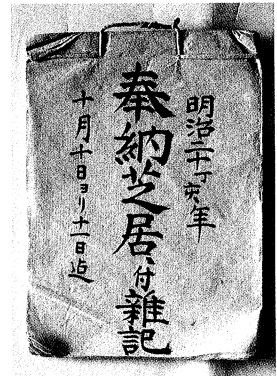 明治二十丁亥年
奉納芝居、付雑記
十月十日ヨリ十一日迠